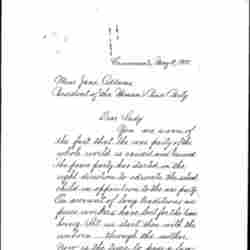 Cincinnati, May 9, 1915.
Miss Jane Addams
President of the Woman's Peace Party
Dear Lady
You are aware of
the fact that the war party of the
whole world is united and armed
the peace party has started in the
right direction to educate the school
child in opposition to the war party.
On account of long traditions we
peace workers have lost for the time
being. Let us start then with the
unborn – through the mother.
Now is the time to pass a law